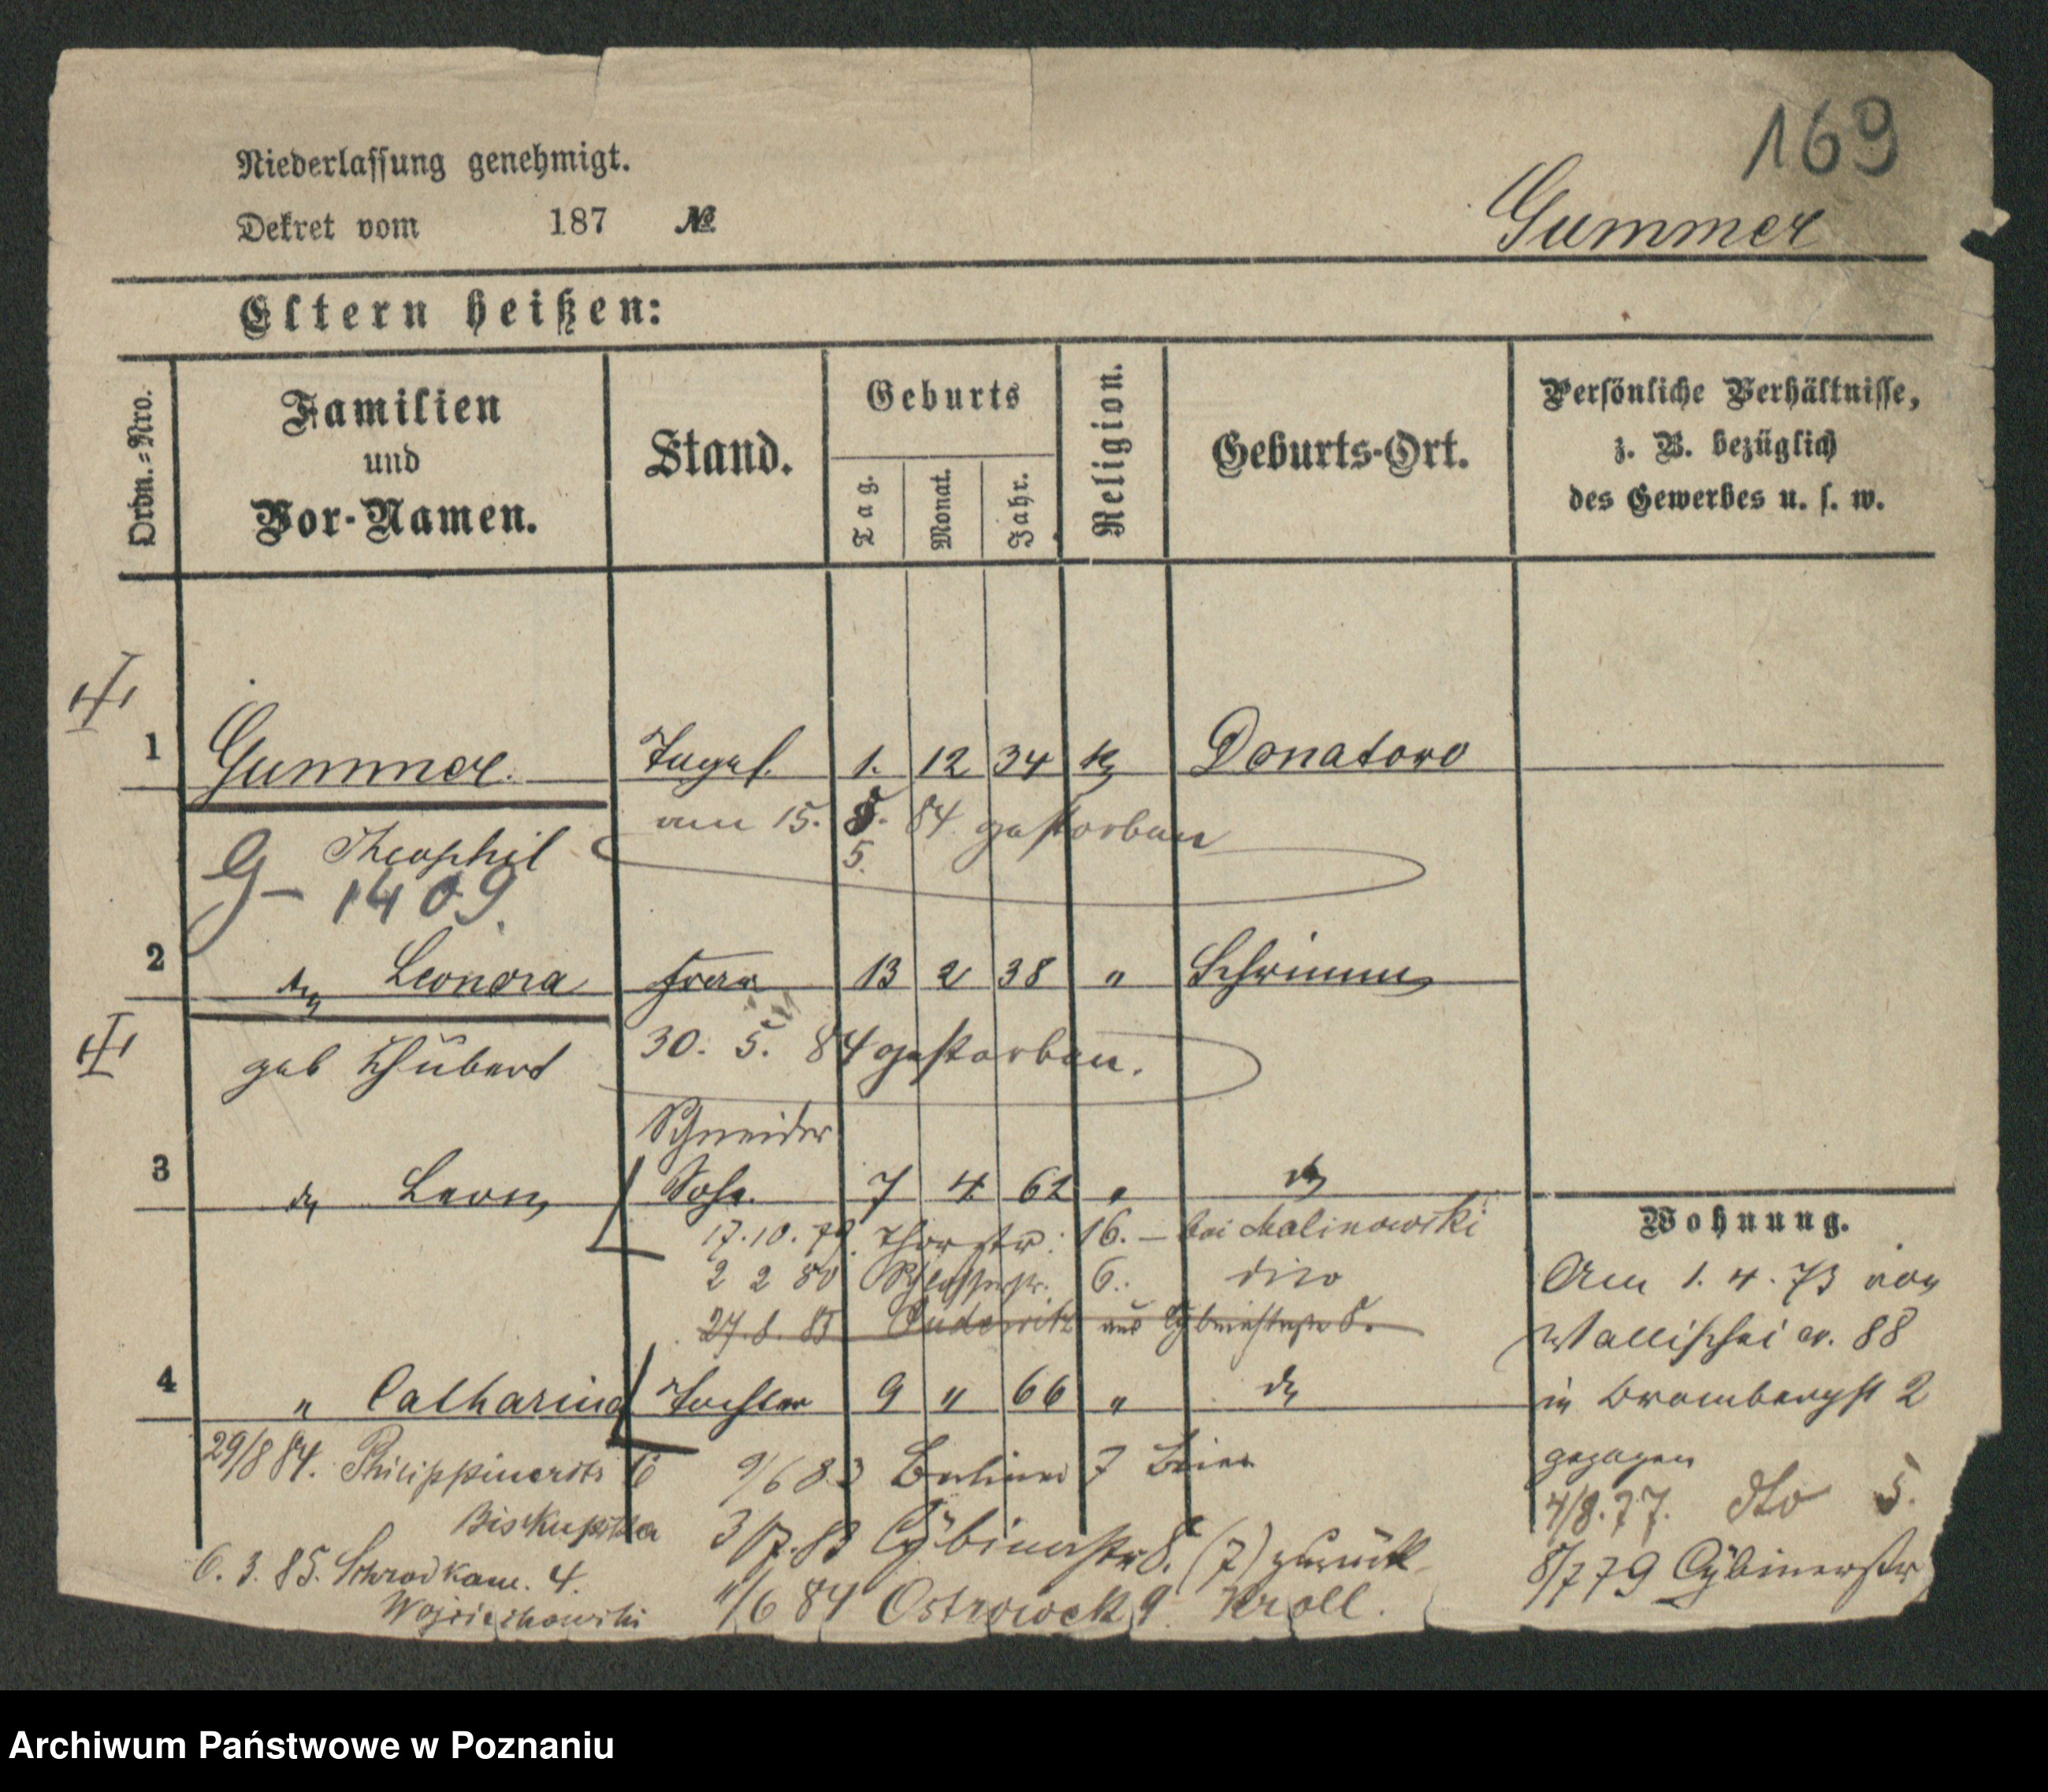 169
Niederlassung genehmigt.
Dekret vom 187 №
Gummer
Eltern heißen:
Ordn.=Nro.
Familien und Vor-Namen.
Stand.
Geburts
Tag.
Monat.
Jahr.
Religion.
Geburts-Ort.
Persönliche Verhältnisse,
z. B. bezüglich
des Gewerbes u. s. w.
1 Gummer. Tagel. 1. 12 34 K Donatowo
am 15. 5. 84 gestorben
5.
Theophil
G- 1409.
2 Leonora Frau 13 2 38 " Schrimm
30. 5. 84 gestorben.
geb Schubert
Schneider
3 Leon Sohn. 7 4 62 "
17.10.79. Thorstr: 16. — bei Malinowski
2 2 80 6. dito
27.8.85 aus Cybinastraße 8.
4 " Catharina Tochter 9 " 66 "
Wohnung.
Am 1. 4. 73 von
Wallischei N. 88
in Brombergst 2
gezogen
4/8.77. dto 5.
8/7 79 Cybinerstr
29/8 84.
6. 3. 85. Schrodkam. 4.
Wojciechowski
9/6 83 Berliner 7
3/7.83 Cybinastr 8. (7) zurück
1/6 84 Ostrowek 9. Kroll.
Archiwum Państwowe w Poznaniu